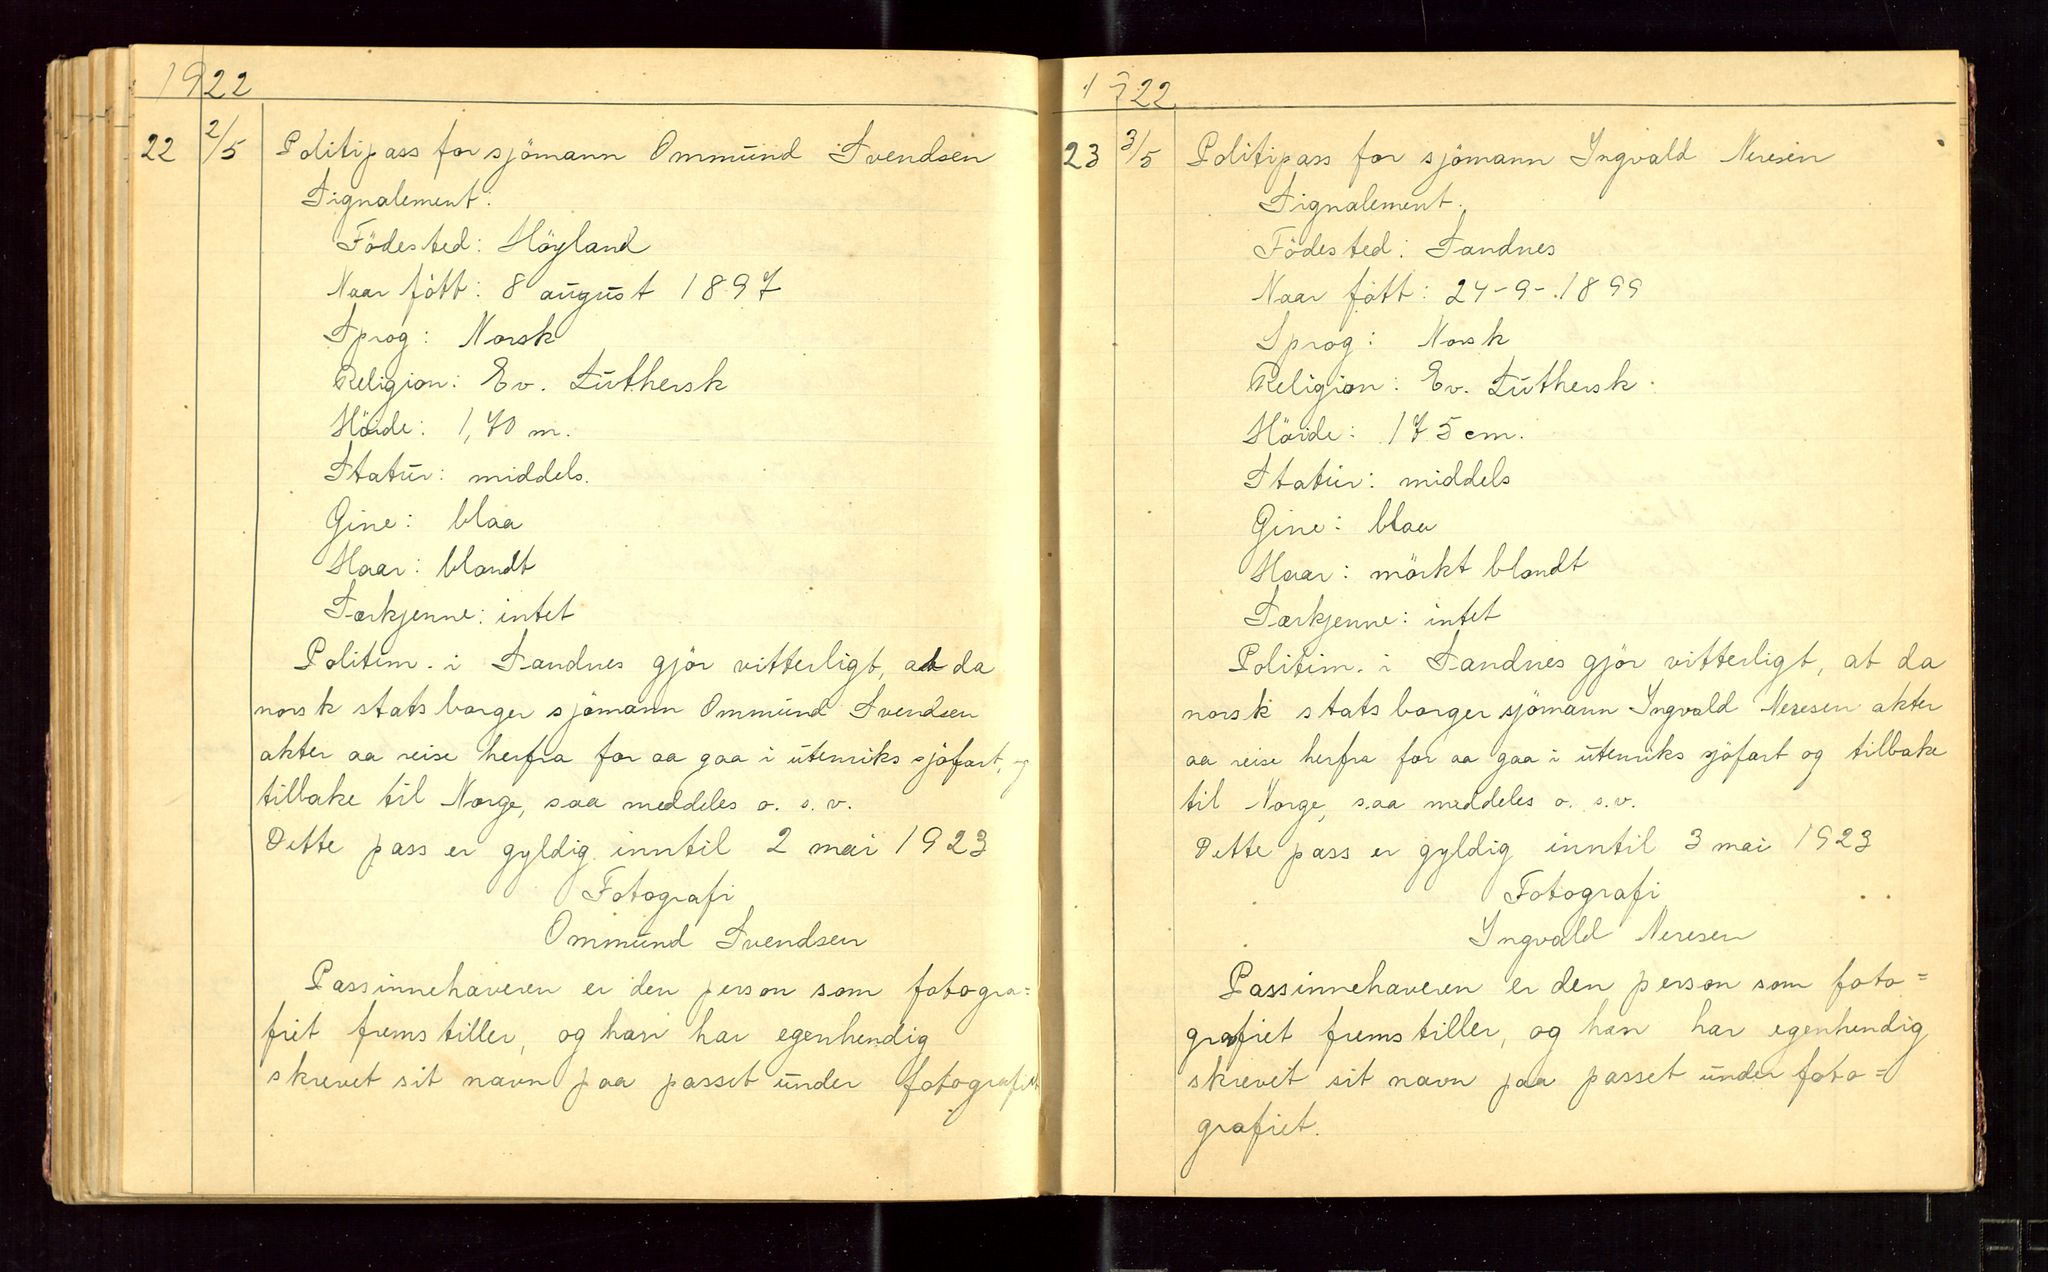 1922
22 2/5 Politipass for sjömann Ommund Svendsen
Signalement:
Födested: Höyland
Naar fött: 8 august 1897
Sprog: Norsk
Religion: Ev. Luthersk
Höide: 1,70 m.
Statur: middels.
Öine: blaa
Haar: blondt
Særkjenne: intet
Politim. i Sandnes gjör vitterligt, at da
norsk statsborger sjömann Ommund Svendsen
akter aa reise herfra for aa gaa i utenriks sjöfart, og
tilbake til Norge, saa meddeles o. s. v.
Dette pass er gyldig inntil 2 mai 1923
Fotografi
Ommund Svendsen
Passinnehaveren er den person som fotogra=
fiet fremstiller, og han har egenhendig
skrevet sit navn paa passet under fotografiet
1922
23 3/5 Politipass for sjömann Yngvald Neresen
Signalement.
Födested: Sandnes
Naar fött: 24-9-1899
Sprog: Norsk
Religion: Ev. Luthersk.
Höide: 175 cm.
Statur: middels
Öine: blaa
Haar: mörkt blondt
Særkjenne: intet
Politim. i Sandnes gjör vitterligt, at da
norsk statsborger sjömann Yngvald Neresen akter
aa reise herfra for aa gaa i utenriks sjöfart og tilbake
til Norge, saa meddeles o. s. v.
Dette pass er gyldig inntil 3 mai 1923
Fotografi
Yngvald Neresen
Passinnehaveren er den person som foto=
grafiet fremstiller, og han har egenhendig
skrevet sit navn paa passet under foto=
grafiet.